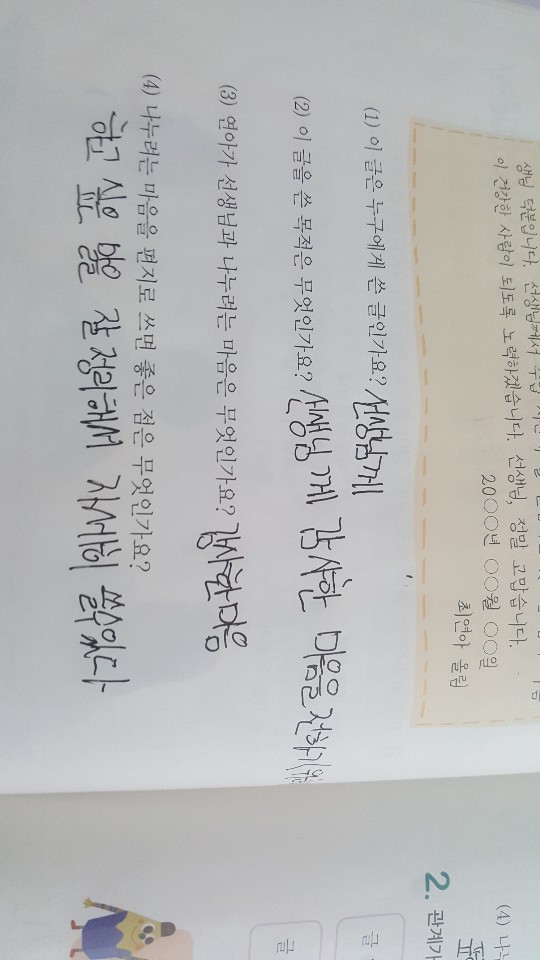 이 건강한 사람이 되도록 노력하겠습니다. 선생님, 정말 고맙습니다.
20○○년 ○○월 ○○일
최연아 올림
(1) 이 글은 누구에게 쓴 글인가요? 선생님께
(2) 이 글을 쓴 목적은 무엇인가요? 선생님께 감사한 마음을 전하기
(3) 연아가 선생님과 나누려는 마음은 무엇인가요? 감사한 마음
(4) 나누려는 마음을 편지로 쓰면 좋은 점은 무엇인가요?
하고 싶은 말을 잘 정리해서 자세히 쓸 수 있다
(4) 나누
2. 관계가
글
글